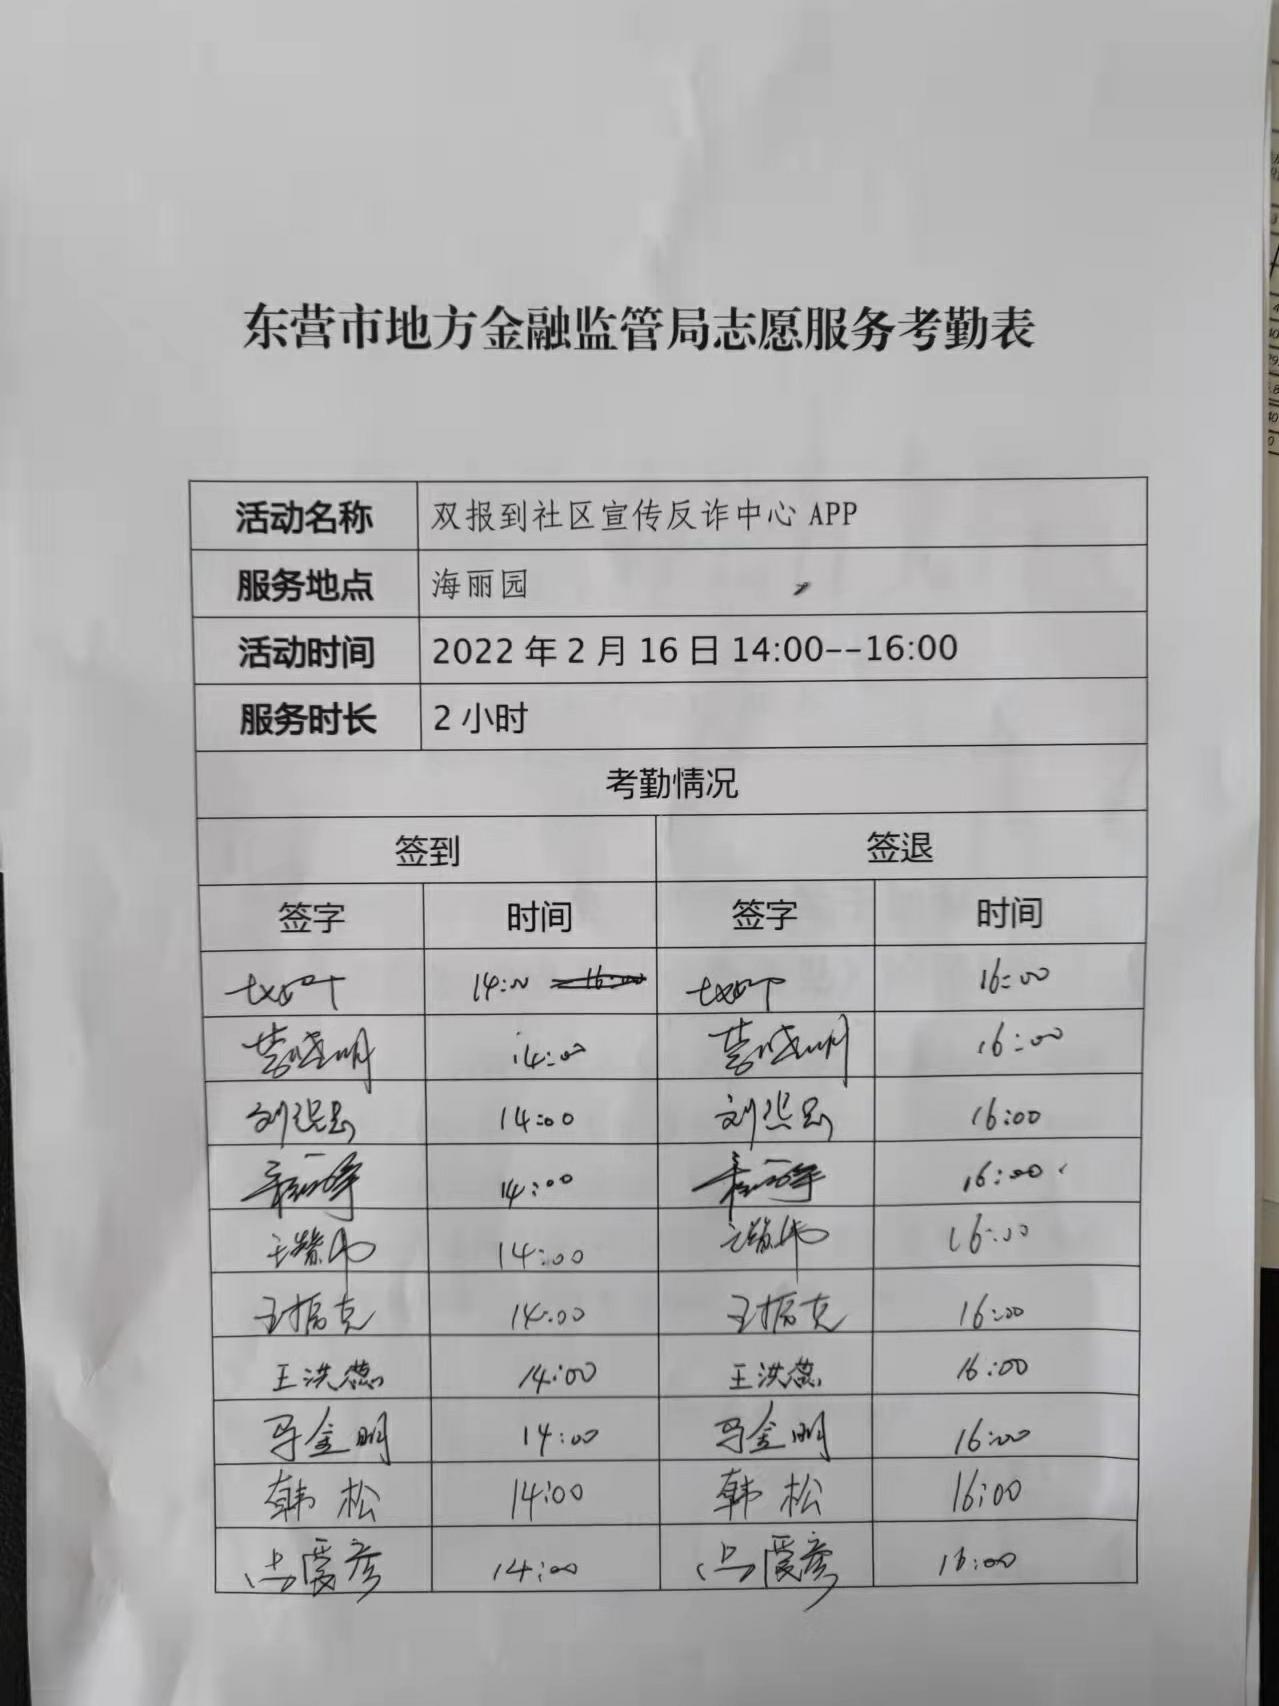 东营市地方金融监管局志愿服务考勤表
活动名称 双报到社区宣传反诈中心 APP
服务地点 海丽园
活动时间 2022 年 2 月 16 日 14:00--16:00
服务时长 2 小时
考勤情况
签到 签退
签字 时间 签字 时间
14:00 16:00 16:00
14:00 16:00
14:00 16:00
14:00 16:00
14:00 16:00
王振克 14:00 王振克 16:00
王洪蕊 14:00 王洪蕊 16:00
马金明 14:00 马金明 16:00
韩松 14:00 韩松 16:00
14:00 16:00